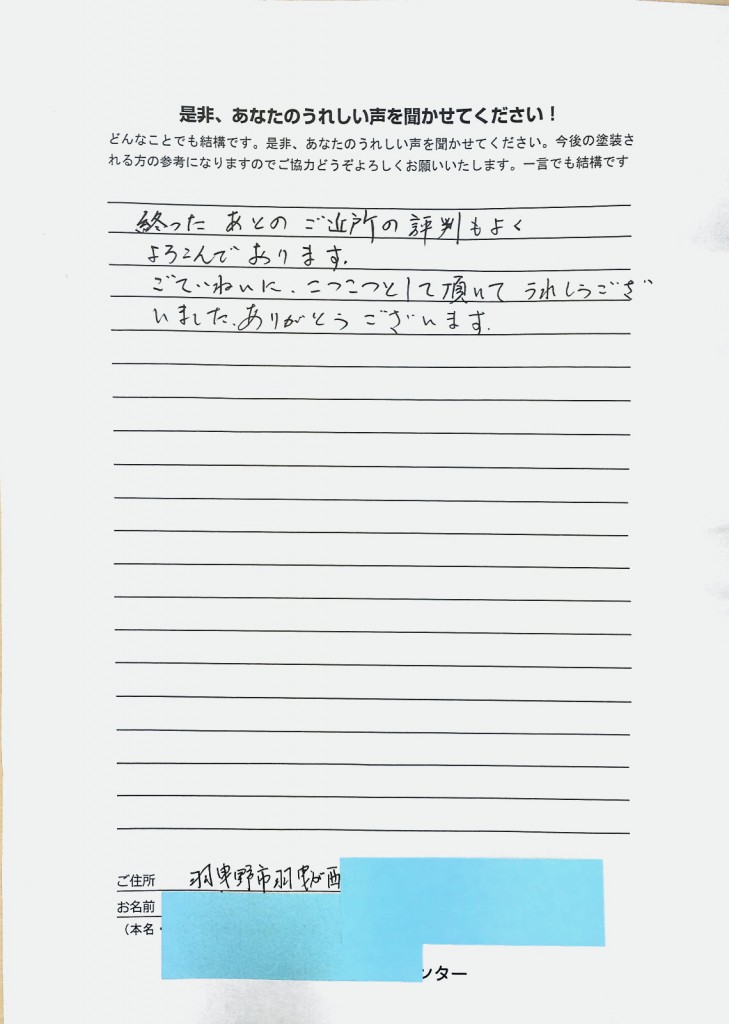 是非、あなたのうれしい声を聞かせてください！
どんなことでも結構です。是非、あなたのうれしい声を聞かせてください。今後の塗装さ
れる方の参考になりますのでご協力どうぞよろしくお願いいたします。一言でも結構です
終った あとの ご近所の評判もよく
よろこんでおります。
ごていねいに、こつこつとして頂いて うれしうござ
いました、ありがとうございます。
ご住所 羽曳野市羽曳が西
お名前
（本名・
ンター